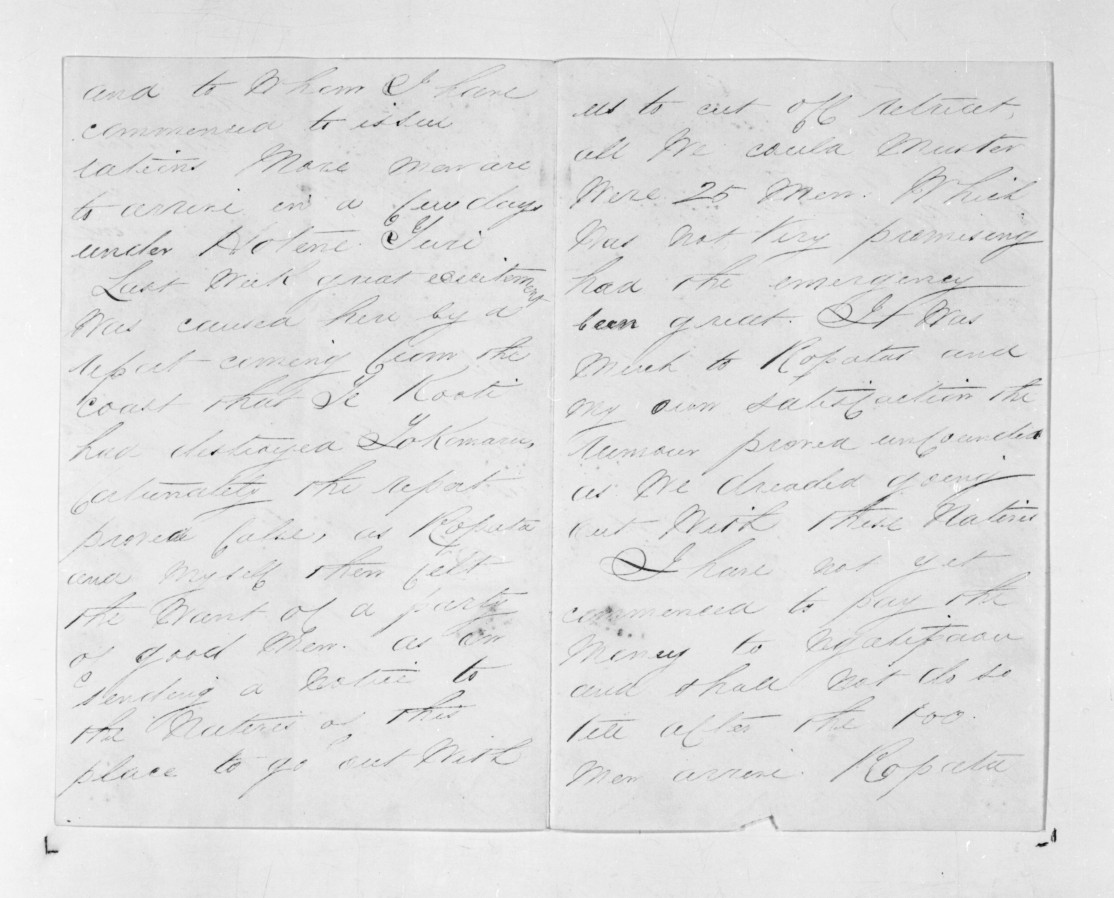 and to Whom I have
commenced to issue
rations More men are
to arrive in a few days
under Hotene
Last Week great excitement
Was caused here by a
report coming from the
coast that Te Kooti
had destroyed Tokomaru,
fortunately the report
proved false, as Ropata
and Myself then felt
the Want of a party
of good Men. as on
sending a Notice to
the Natives of this
place to go out With
us to cut off retreat,
all We could Muster
Were 25 Men. Which
Was not Very promising
had the emergency
been great. It Was
Much to Ropatas and
My own satisfaction the
rumour proved unfounded
as We dreaded going
out With these Natives
I have not yet
commenced to pay the
Money to Ngatiporou
and shall not do so
till after the 100
Men arrive. Ropata